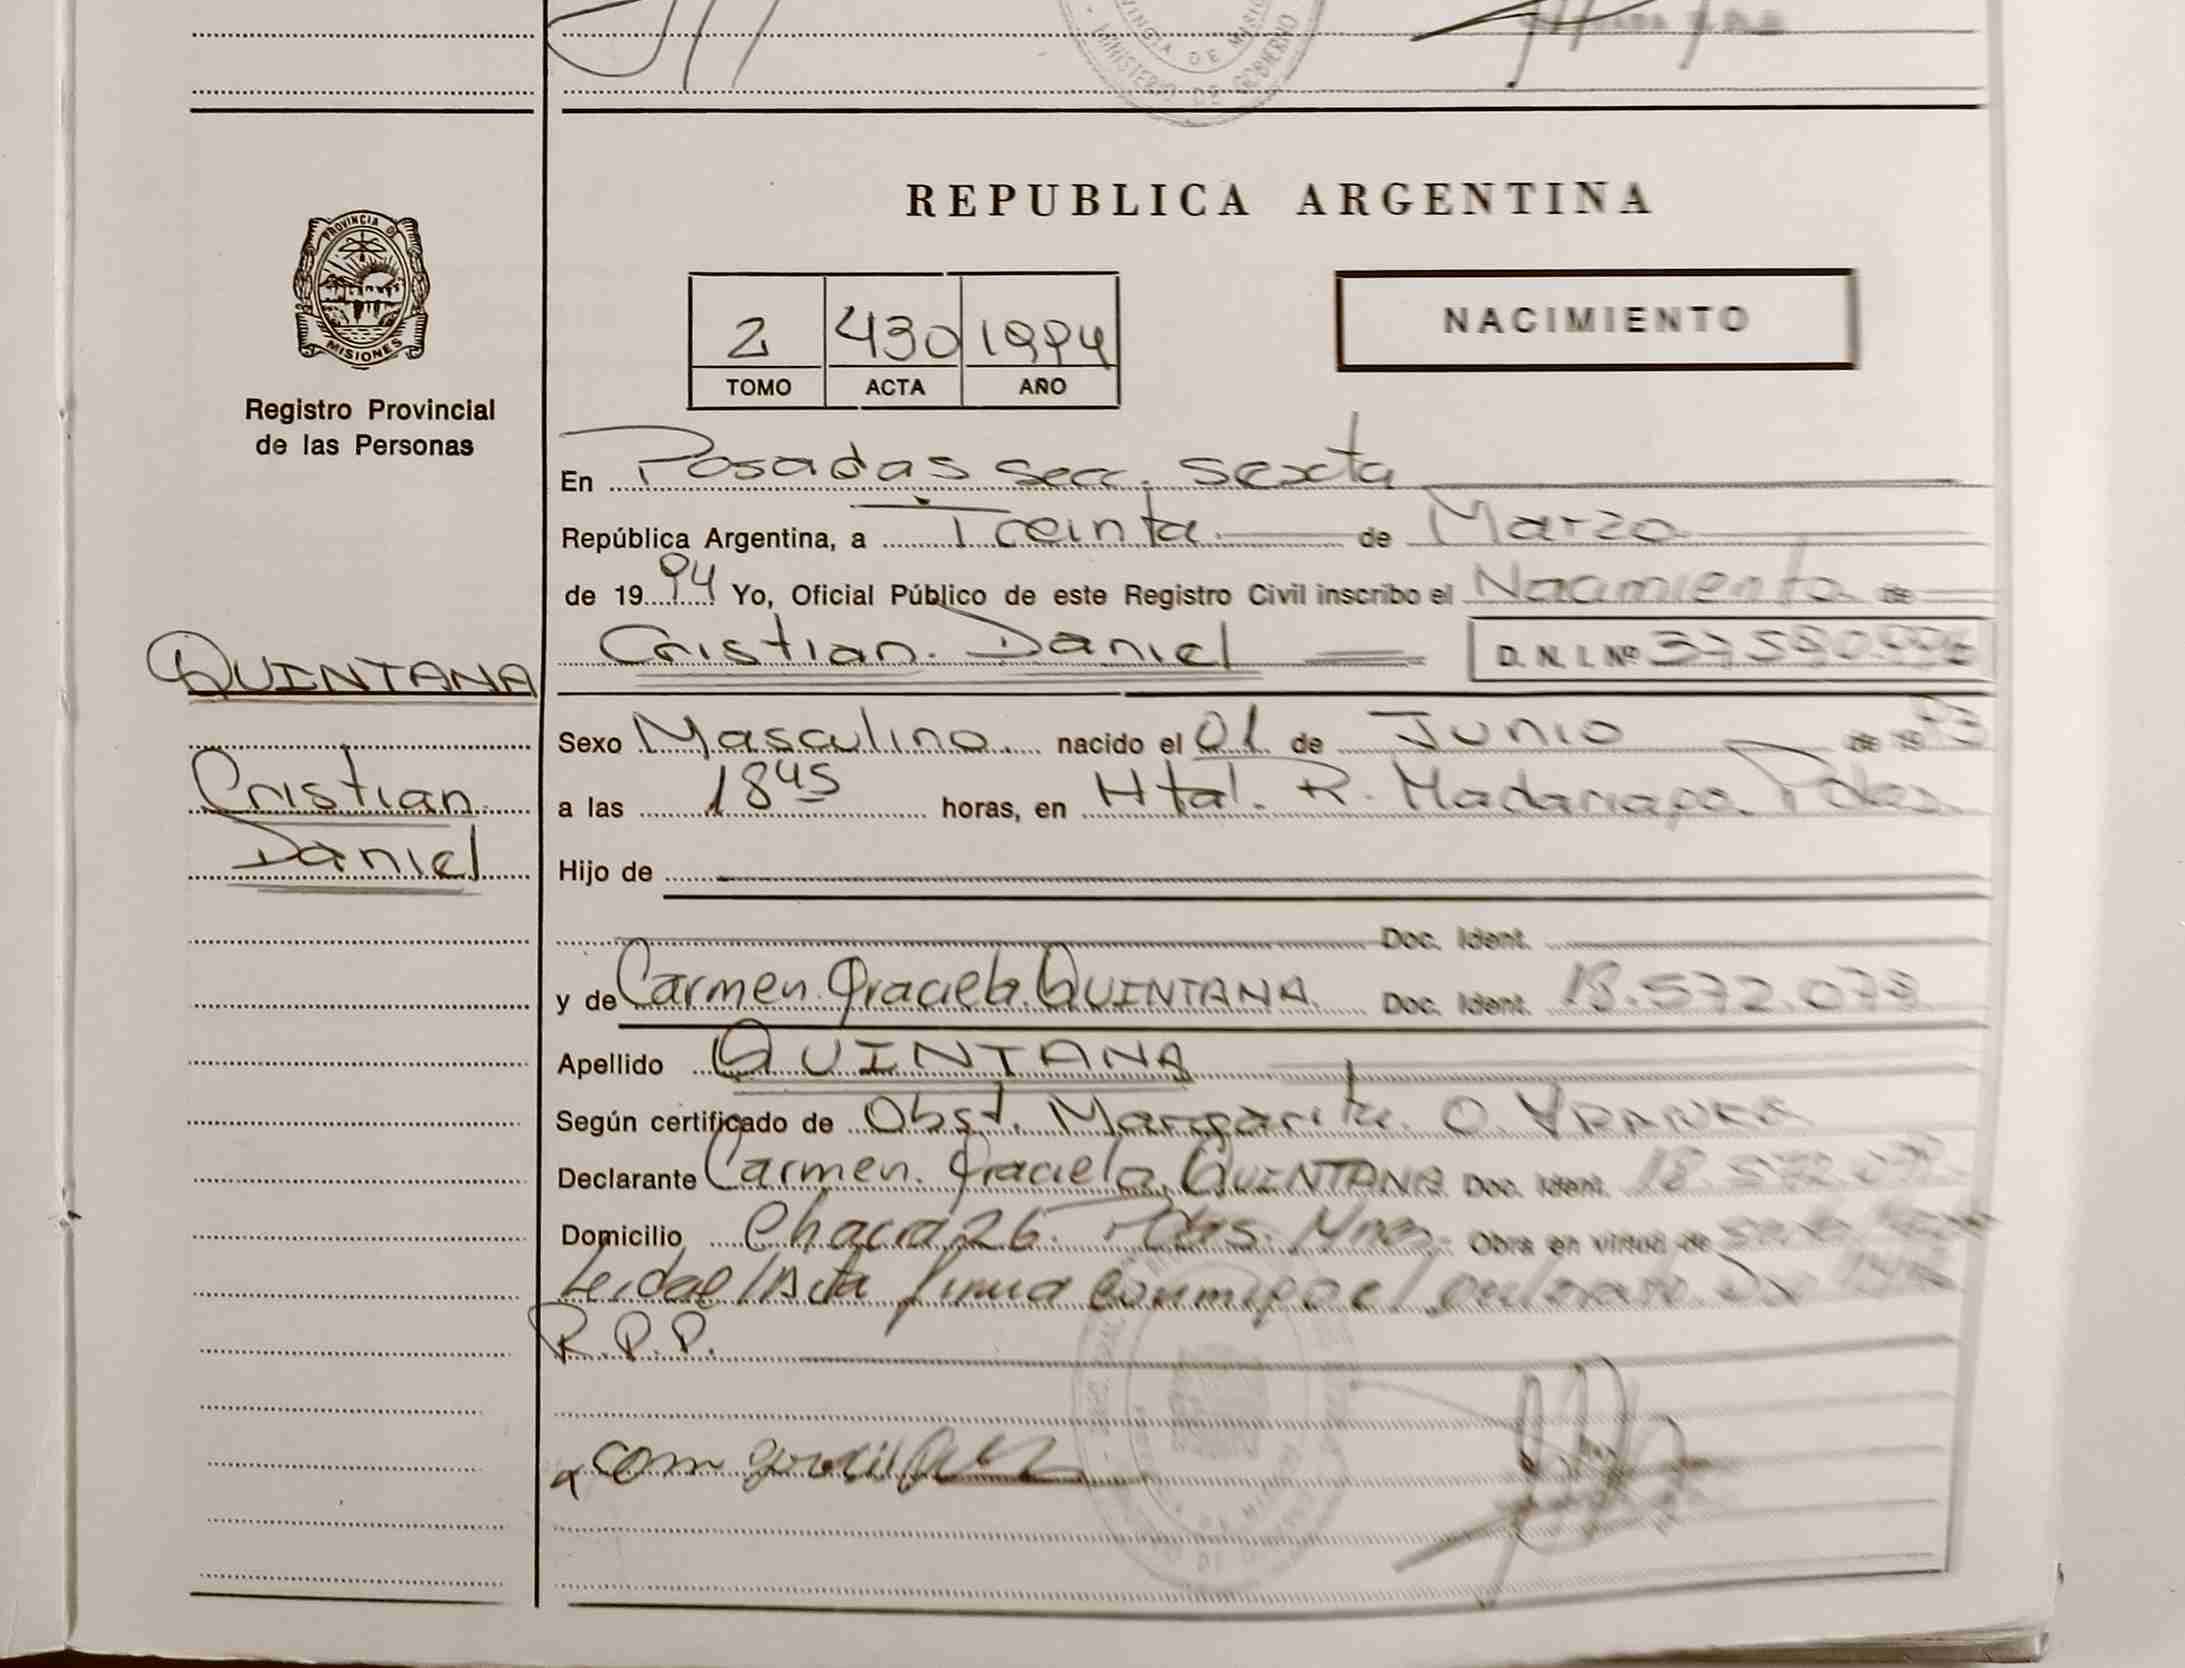 PROVINCIA DE MISIONES
MINISTERIO DE GOBIERNO
REPUBLICA ARGENTINA
PROVINCIA D
MISIONES
Registro Provincial
de las Personas
2 430 1994
TOMO ACTA AÑO
NACIMIENTO
En Posadas secc. sexta
República Argentina, a Treinta de Marzo
de 1994 Yo, Oficial Público de este Registro Civil inscribo el Nacimiento de
QUINTANA
Cristian Daniel
Cristian Daniel D. N. I. Nº 37.590.996
Sexo Masculino nacido el 01 de Junio de 1993
a las 18 45 horas, en Htal. R. Madariaga Pdas.
Hijo de
Doc. Ident.
y de Carmen Graciela QUINTANA Doc. Ident. 18.572.079
Apellido QUINTANA
Según certificado de Obst. Margarita O.
Declarante Carmen Graciela QUINTANA Doc. Ident. 18.572.079
Domicilio Chacra 26. Pdas. Mnes. Obra en virtud de
Leida el Acta firma conmigo el
R.P.P.